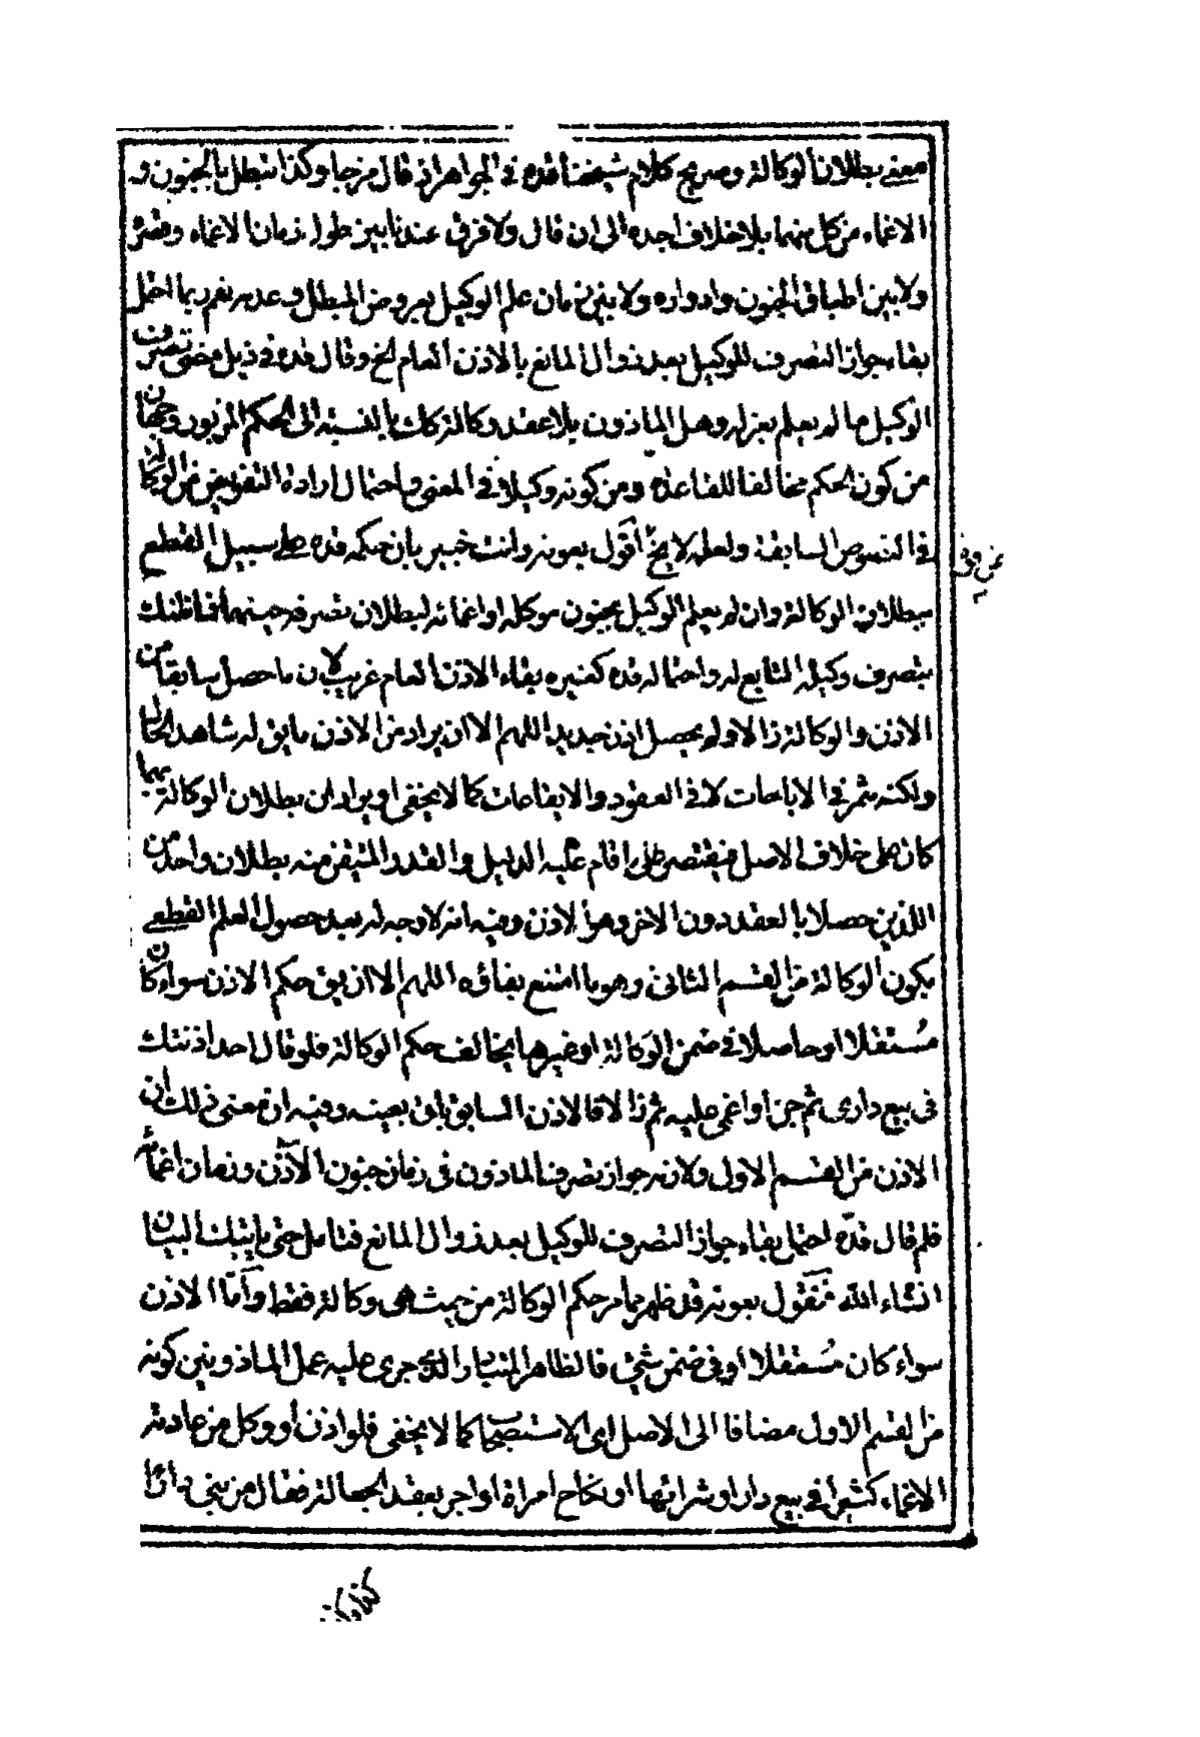 معنى بطلان الوكالة وصريح كلام شيخنا قده في الجواهر اذ قال مزجا وكذا تبطل بالجنون و
الاغماء من كل منهما بلا خلاف اجده الى ان قال ولا فرق عندنا بين طول زمان الاغماء وقصره
ولا بين اطباق الجنون وادواره ولا بين زمان علم الوكيل بعروض المبطل وعدمه نعم ربما احتمل
بقاء جواز التصرف للوكيل بعد زوال المانع بالاذن العام الخ وقال قده في ذيل مضى تصرف
الوكيل ما لم يعلم بعزله وهل الماذون بلا عقد وكالة كك بالنسبة الى الحكم المزبور وجهان
من كون الحكم مخالفا للقاعدة ومن كونه وكيلا في المعنى واحتمال ارادة التفويض من الوكالة
في النصوص السابقة ولعله لا يخ اقول بعونه وانت خبير بان حكمه قده على سبيل القطع
ببطلان الوكالة وان لم يعلم الوكيل بجنون موكله او اغمائه لبطلان تصرفه حينهما فما ظنك
بتصرف وكيله التابع له واحتماله قده كغيره بقاء الاذن العام غريب لان ما حصل سابقا من
الاذن والوكالة زالا ولم يحصل اذن جديد اللهم الا ان يراد من الاذن ما يق له شاهد الحال
ولكنه ثمر في الاباحات لا في العقود والايقاعات كما لا يخفى او يراد ان بطلان الوكالة بهما
كان على خلاف الاصل فيقتصر على ما قام عليه الدليل والقدر المتيقن منه بطلان واحد من
اللذين حصلا بالعقد دون الاخر وهو الاذن وفيه انه لا وجه له بعد حصول العلم القطعي
بكون الوكالة من القسم الثاني وهو ما امتنع بقاؤه اللهم الا ان يق حكم الاذن سواء كان
مستقلا او حاصلا في ضمن الوكالة او غيرها يخالف حكم الوكالة فلو قال احد اذنتك
في بيع داري ثم جن او اغمى عليه ثم زالا فالاذن السابق باق بعينه وفيه ان معنى ذلك ان
الاذن من القسم الاول ولازمه جواز تصرف الماذون في زمان جنون الاذن وزمان اغمائه
فلم قال قده احتمل بقاء جواز التصرف للوكيل بعد زوال المانع فتامل حتى ياتيك البيان
انشاء الله فنقول بعونه قد ظهر مما مر حكم الوكالة من حيث هى وكالة فقط واما الاذن
سواء كان مستقلا او في ضمن شئ فالظاهر المتبادر الذي جرى عليه عمل الماذونين كونه
من القسم الاول مضافا الى الاصل اي الاستصحاب كما لا يخفى فلو اذن او وكل من عادته
الاغماء كثيرا في بيع دار او شرائها او نكاح امراة او اجر بعقد الجعالة فقال من بنى دارا